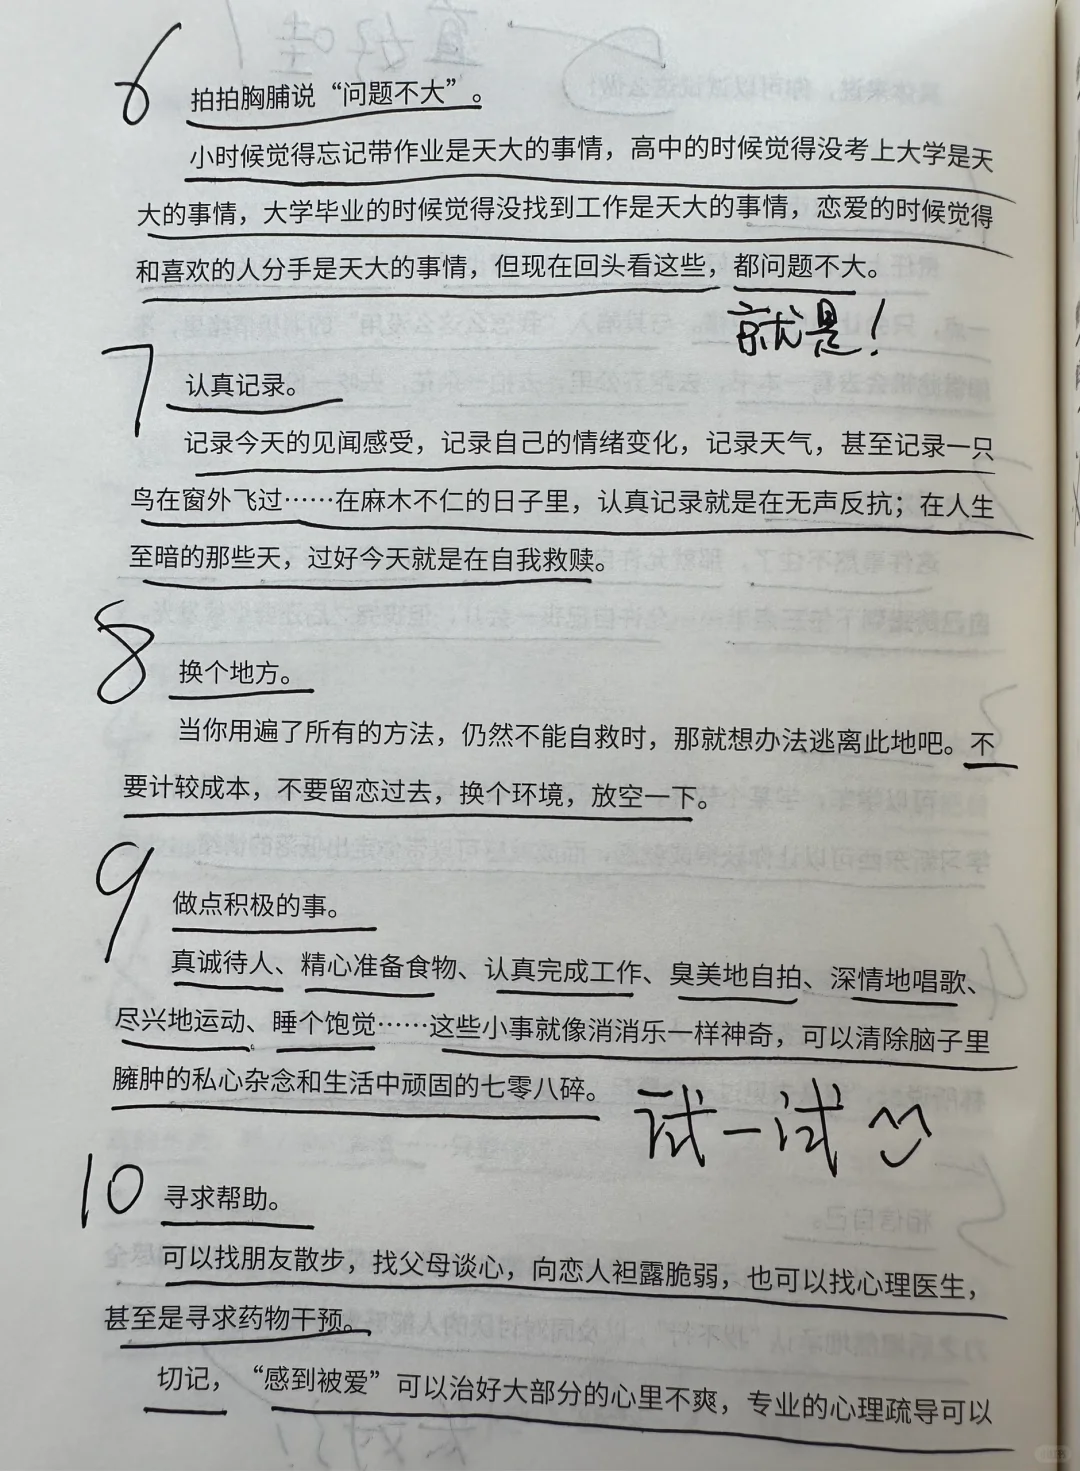 6 拍拍胸脯说“问题不大”。
小时候觉得忘记带作业是天大的事情，高中的时候觉得没考上大学是天
大的事情，大学毕业的时候觉得没找到工作是天大的事情，恋爱的时候觉得
和喜欢的人分手是天大的事情，但现在回头看这些，都问题不大。
就是！
7 认真记录。
记录今天的见闻感受，记录自己的情绪变化，记录天气，甚至记录一只
鸟在窗外飞过……在麻木不仁的日子里，认真记录就是在无声反抗；在人生
至暗的那些天，过好今天就是在自我救赎。
8 换个地方。
当你用遍了所有的方法，仍然不能自救时，那就想办法逃离此地吧。不
要计较成本，不要留恋过去，换个环境，放空一下。
9 做点积极的事。
真诚待人、精心准备食物、认真完成工作、臭美地自拍、深情地唱歌、
尽兴地运动、睡个饱觉……这些小事就像消消乐一样神奇，可以清除脑子里
臃肿的私心杂念和生活中顽固的七零八碎。
试一试
10 寻求帮助。
可以找朋友散步，找父母谈心，向恋人袒露脆弱，也可以找心理医生，
甚至是寻求药物干预。
切记，“感到被爱”可以治好大部分的心里不爽，专业的心理疏导可以